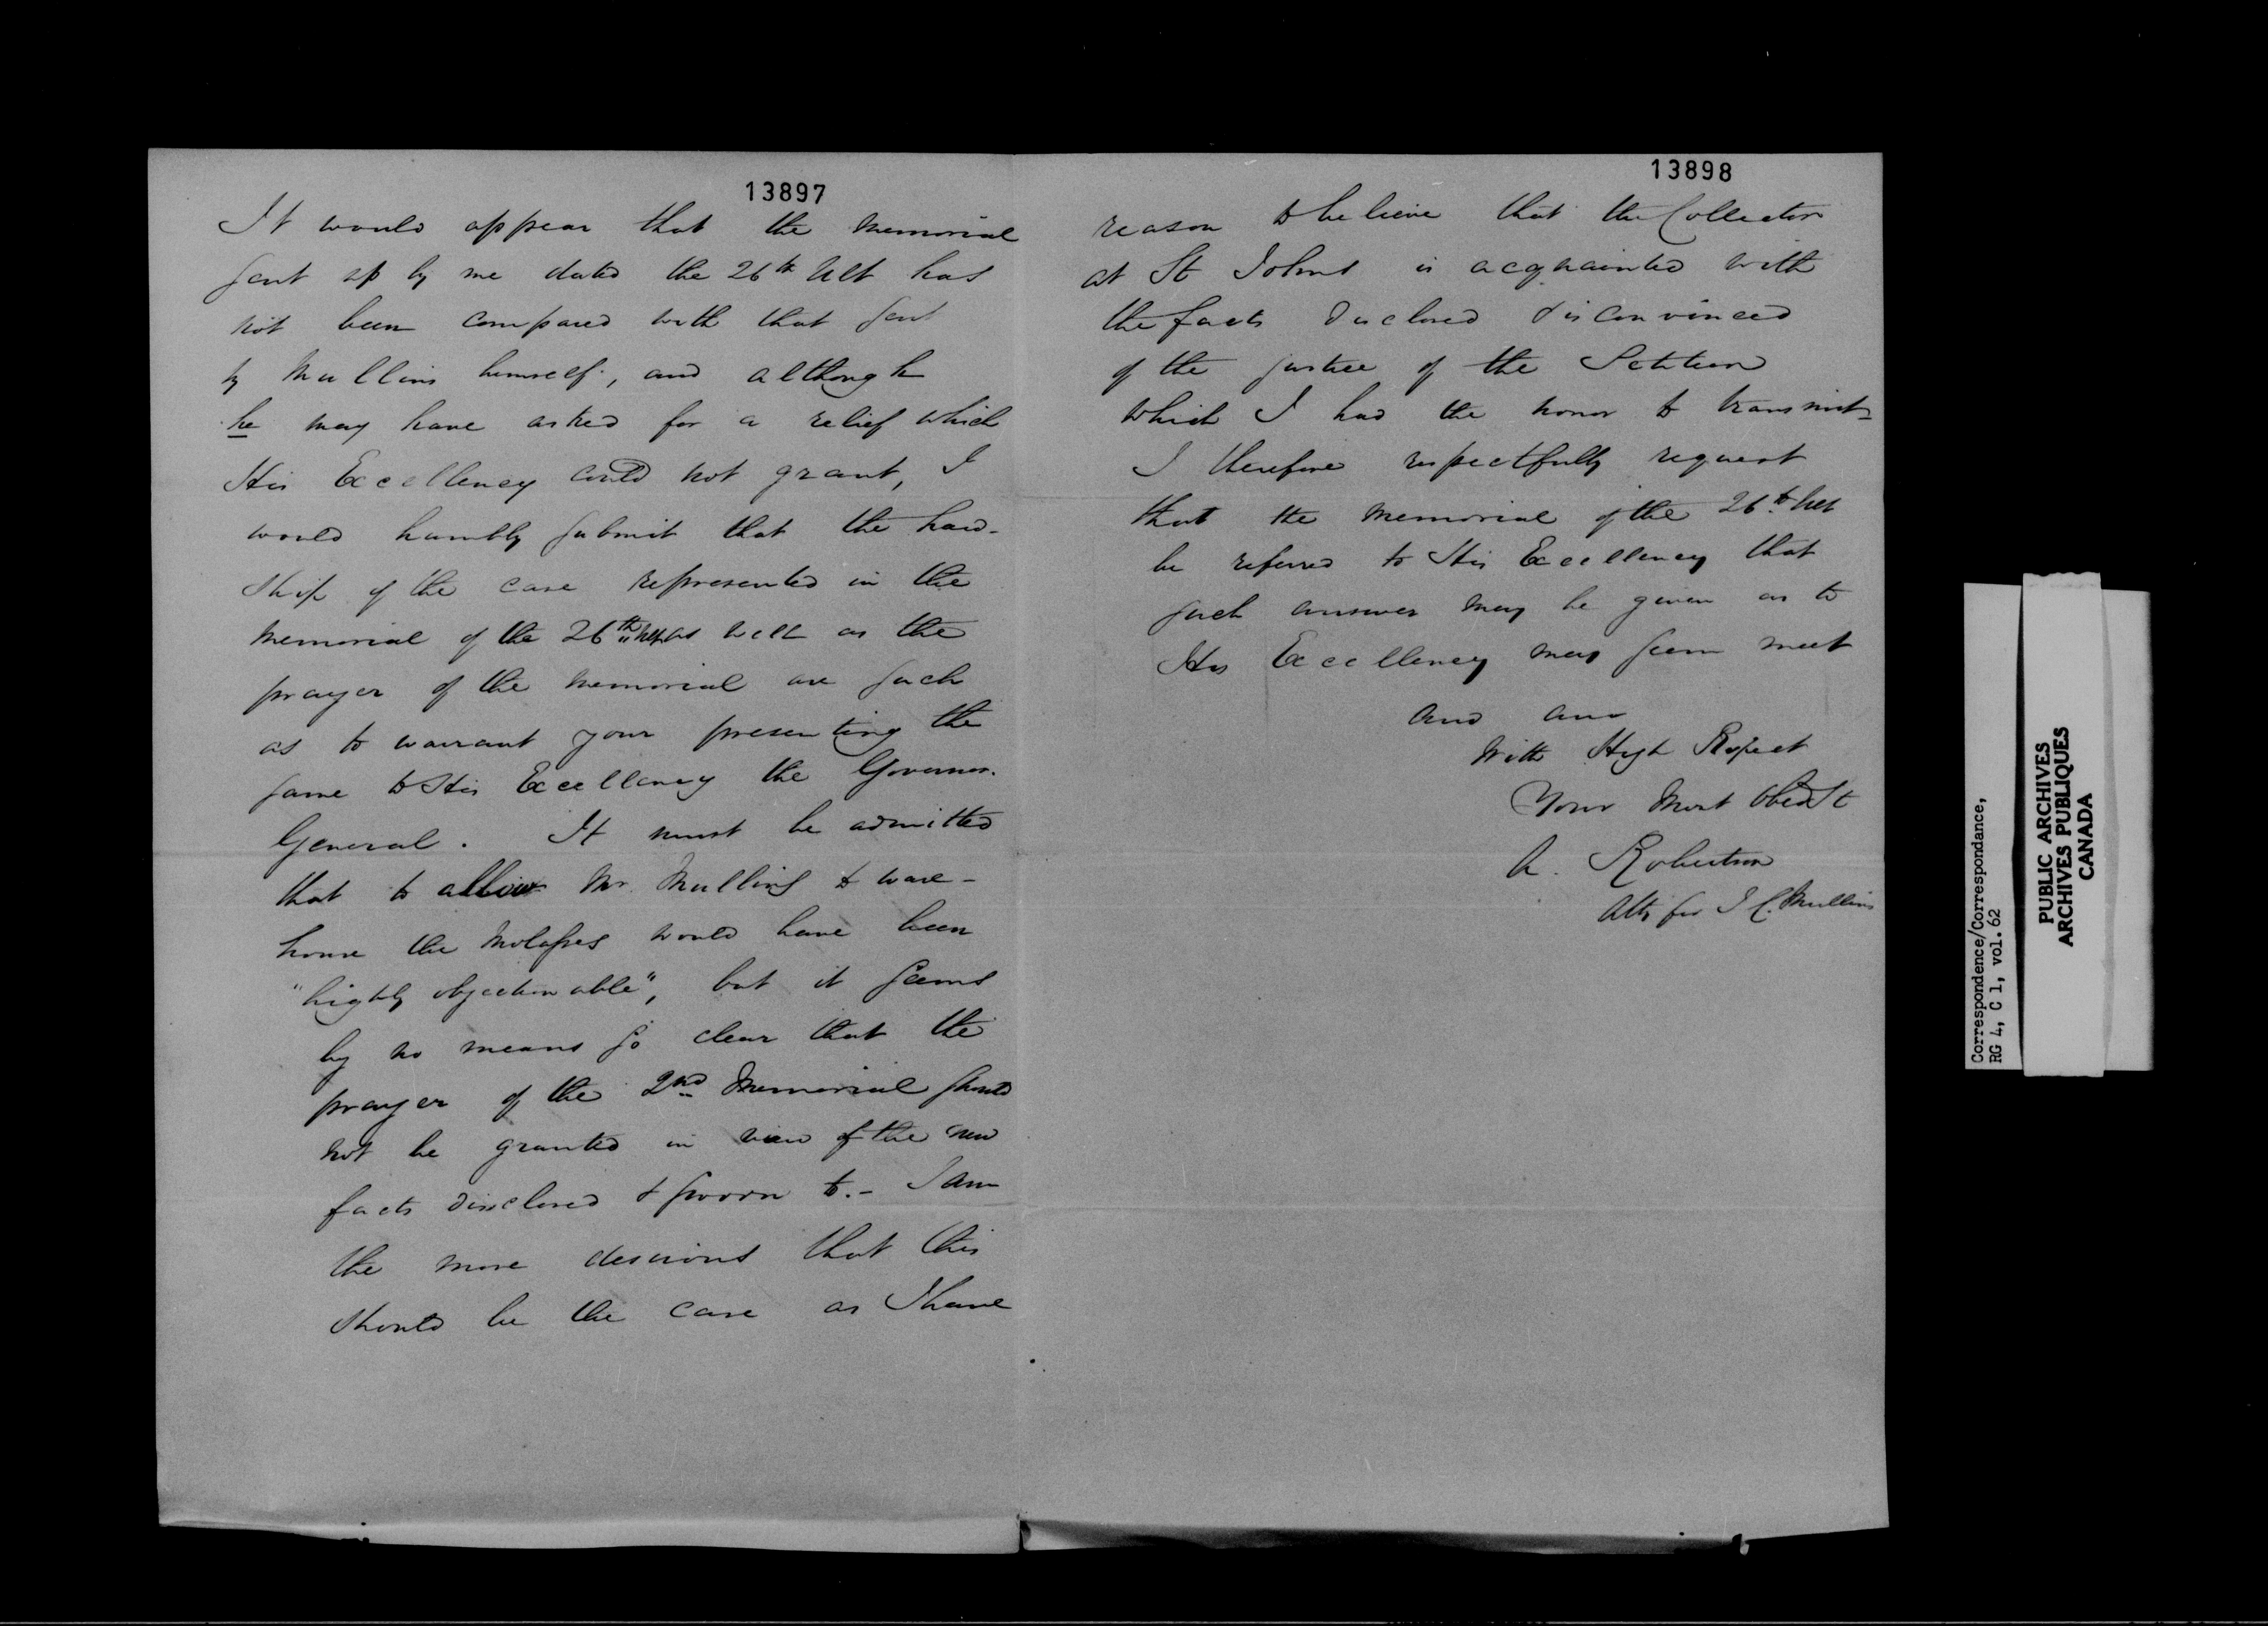 13897
It would appear that the memorial
sent up by me dated the 26th Ult has
not been compared with that sent
by Mullins himself, and although
he may have asked for a relief which
His Excellency could not grant, I
would humbly submit that the hard-
ship of the case represented in the
memorial of the 26th ult as well as the
prayer of the memorial are such
as to warrant your presenting the
same to His Excellency the Governor
General. It must be admitted
that to allow Mr. Mullins to ware-
house the Molasses would have been
"highly objectionable", but it seems
by no means so clear that the
prayer of the 2nd Memorial should
not be granted in view of the new
facts disclosed & sworn to. - I am
the more desirous that this
should be the case as I have
13898
reason to believe that the Collector
at St Johns is acquainted with
the facts disclosed & is convinced
of the justice of the Petition
which I had the honor to transmit-
I therefore respectfully request
that the memorial of the 26th ult
be referred to His Excellency that
such answer may be given as to
His Excellency may seem meet
and am
With High Respect
Your Most Obedt
A. Robertson
Atty for J C. Mullins
Correspondence/Correspondance,
RG 4, C 1, vol. 62
PUBLIC ARCHIVES
ARCHIVES PUBLIQUES
CANADA